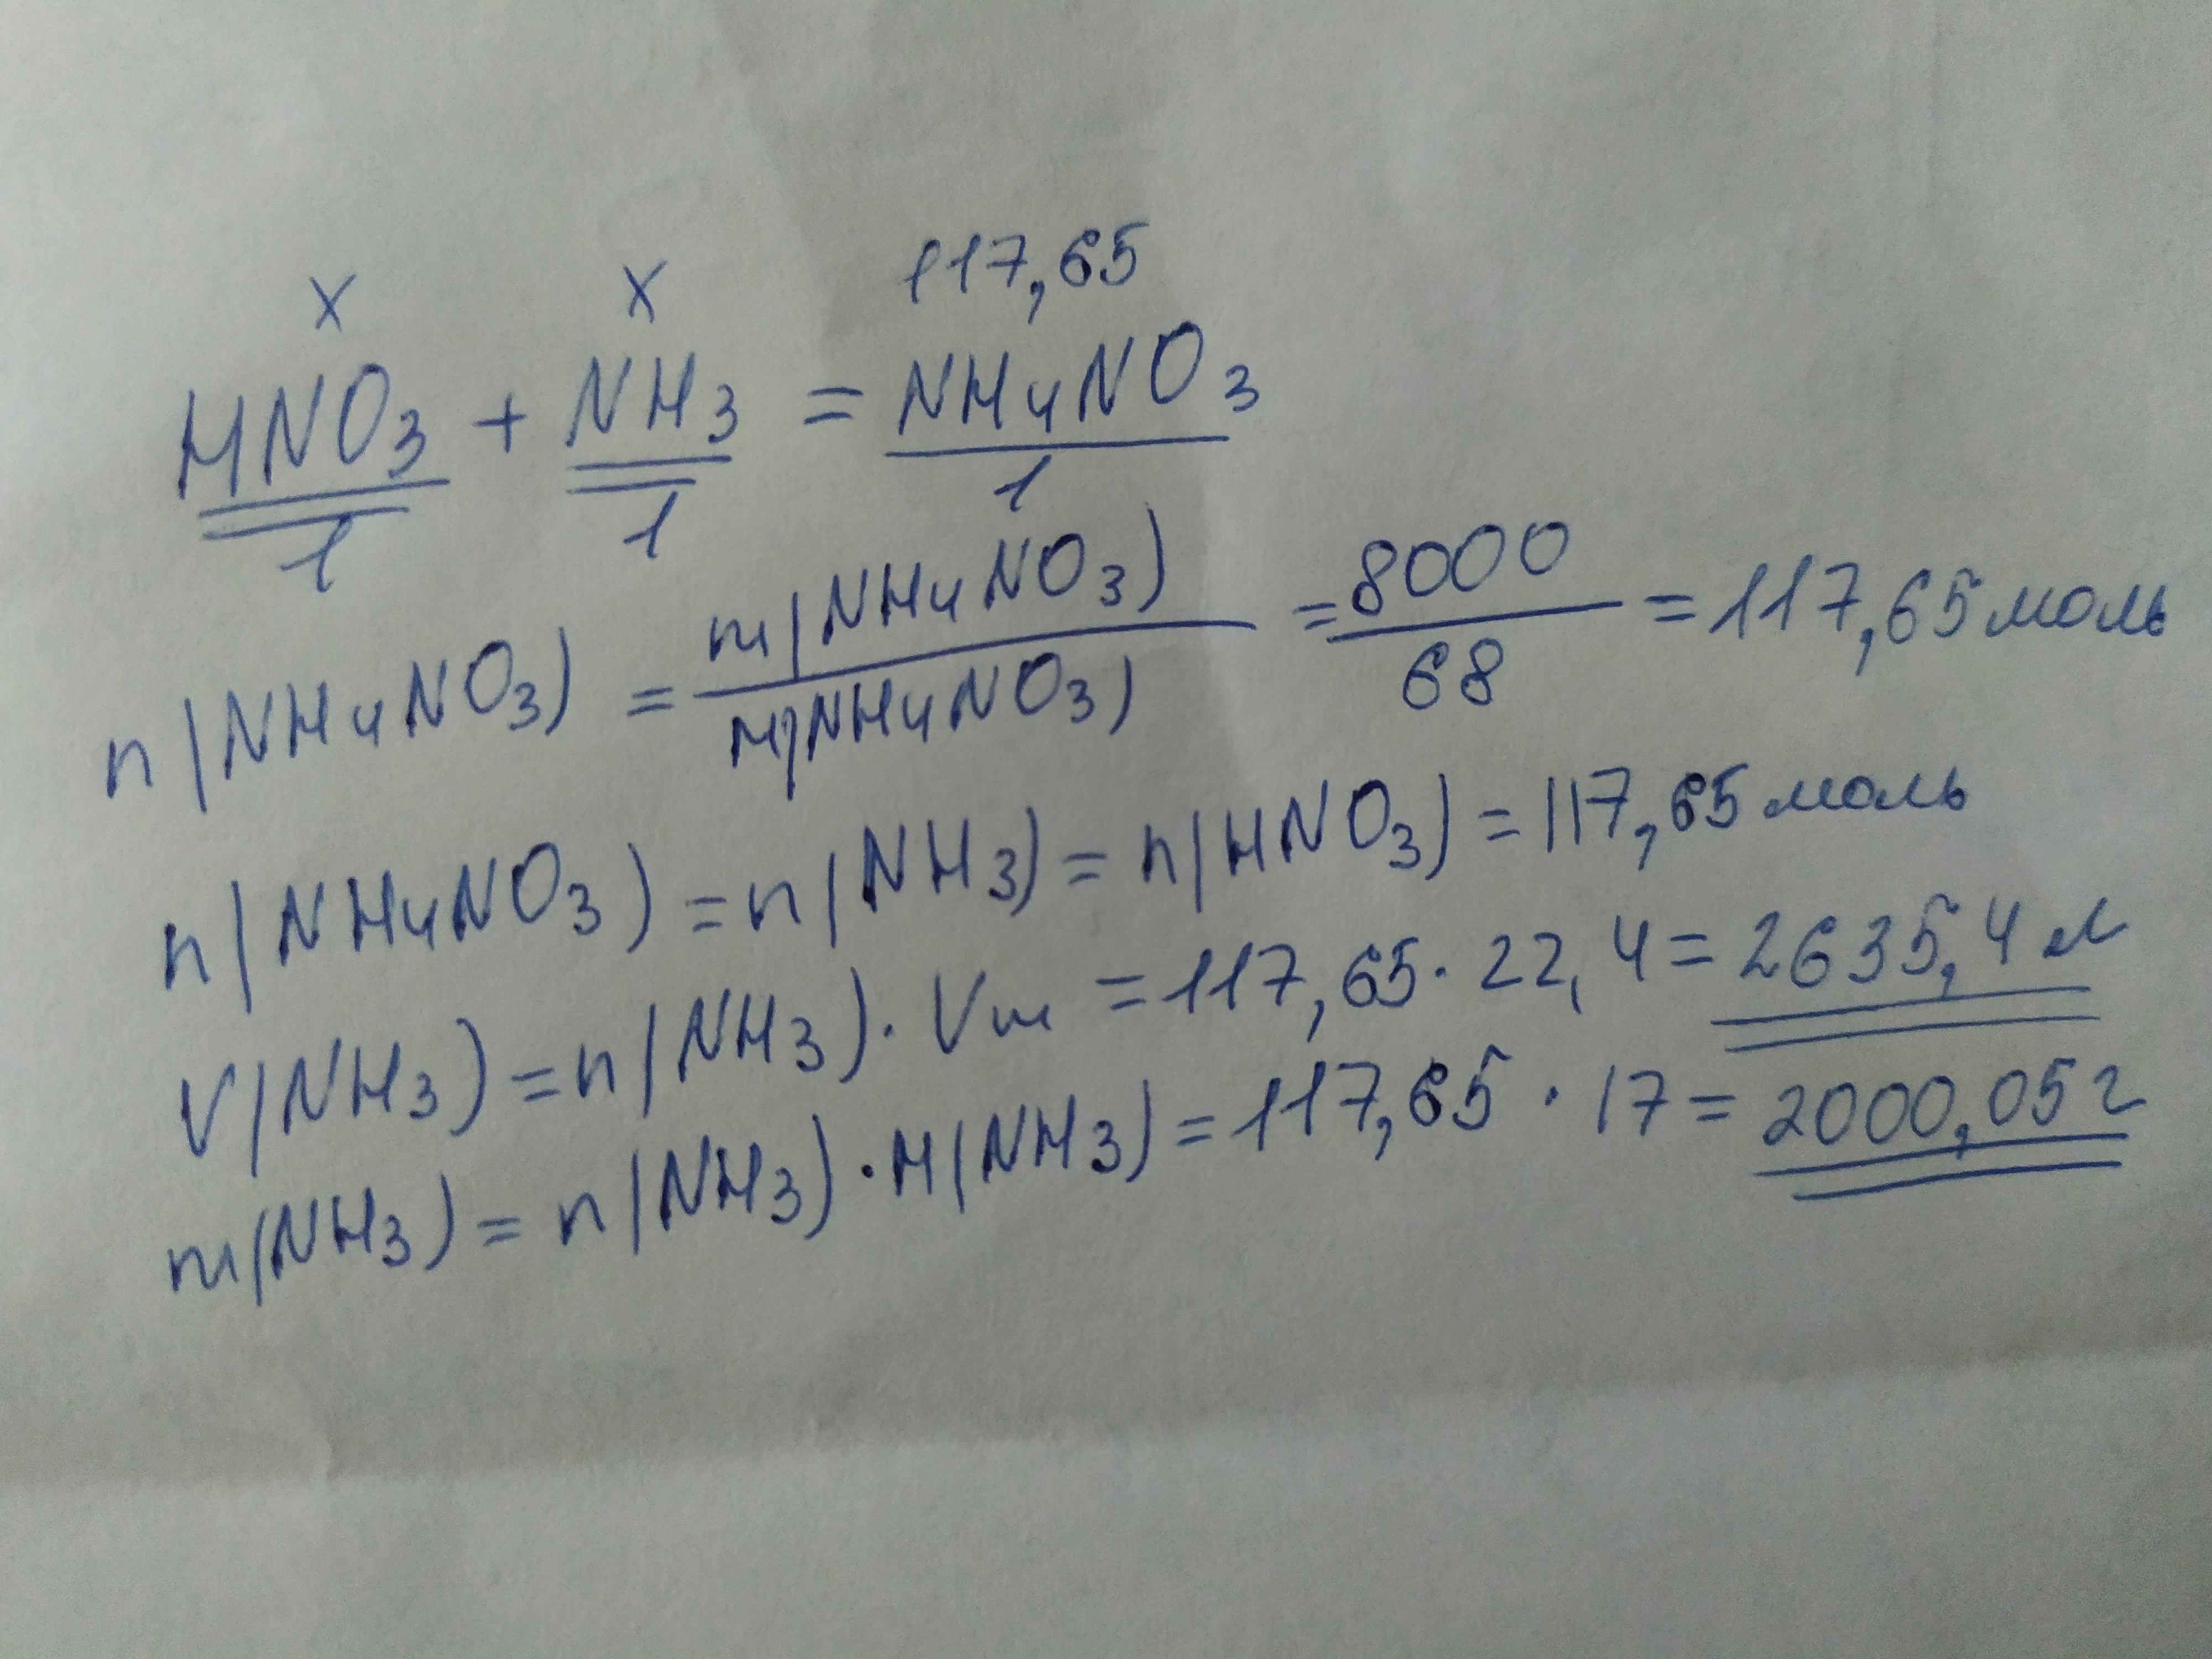 x x 117,65
HNO3 + NH3 = NH4NO3
1 1 1
n(NH4NO3) = m(NH4NO3) / M(NH4NO3) = 8000 / 68 = 117,65 моль
n(NH4NO3) = n(NH3) = n(HNO3) = 117,65 моль
V(NH3) = n(NH3) · Vm = 117,65 · 22,4 = 2635,4 л
m(NH3) = n(NH3) · M(NH3) = 117,65 · 17 = 2000,05 г